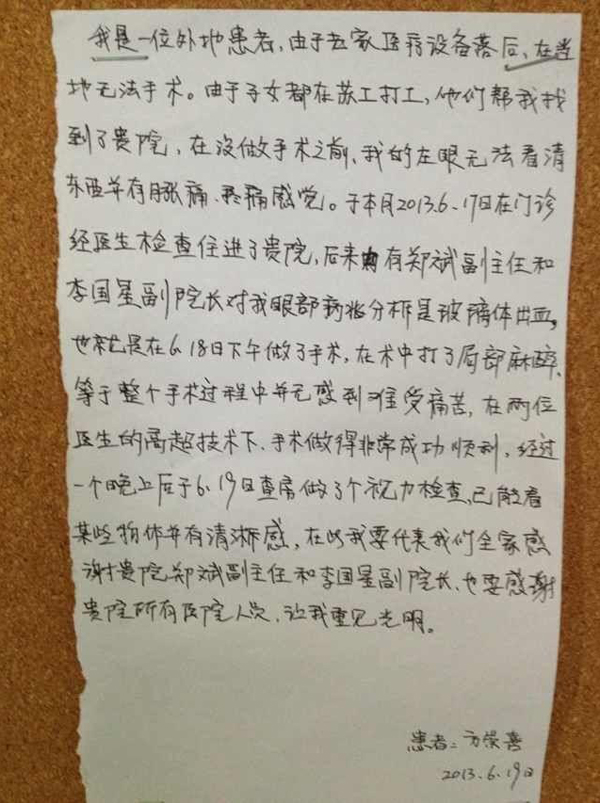 我是一位外地患者，由于老家医疗设备落后，在当
地无法手术。由于子女都在苏工打工，他们帮我找
到了贵院，在没做手术之前，我的左眼无法看清
东西并有胀痛、疼痛感觉。于本月2013.6.17日在门诊
经医生检查住进了贵院，后来由有郑斌副主任和
李国星副院长对我眼部病状分析是玻璃体出血，
也就是在6.18日下午做了手术，在术中打了局部麻醉、
等于整个手术过程中并无感到难受痛苦，在两位
医生的高超技术下、手术做得非常成功顺利，经过
一个晚上后于6.19日查房做了个视力检查、已能看
某些物体并有清淅感，在此我要代表我们全家感
谢贵院郑斌副主任和李国星副院长、也要感谢
贵院所有医院人员，让我重见光明。
患者：方荣喜
2013.6.19日